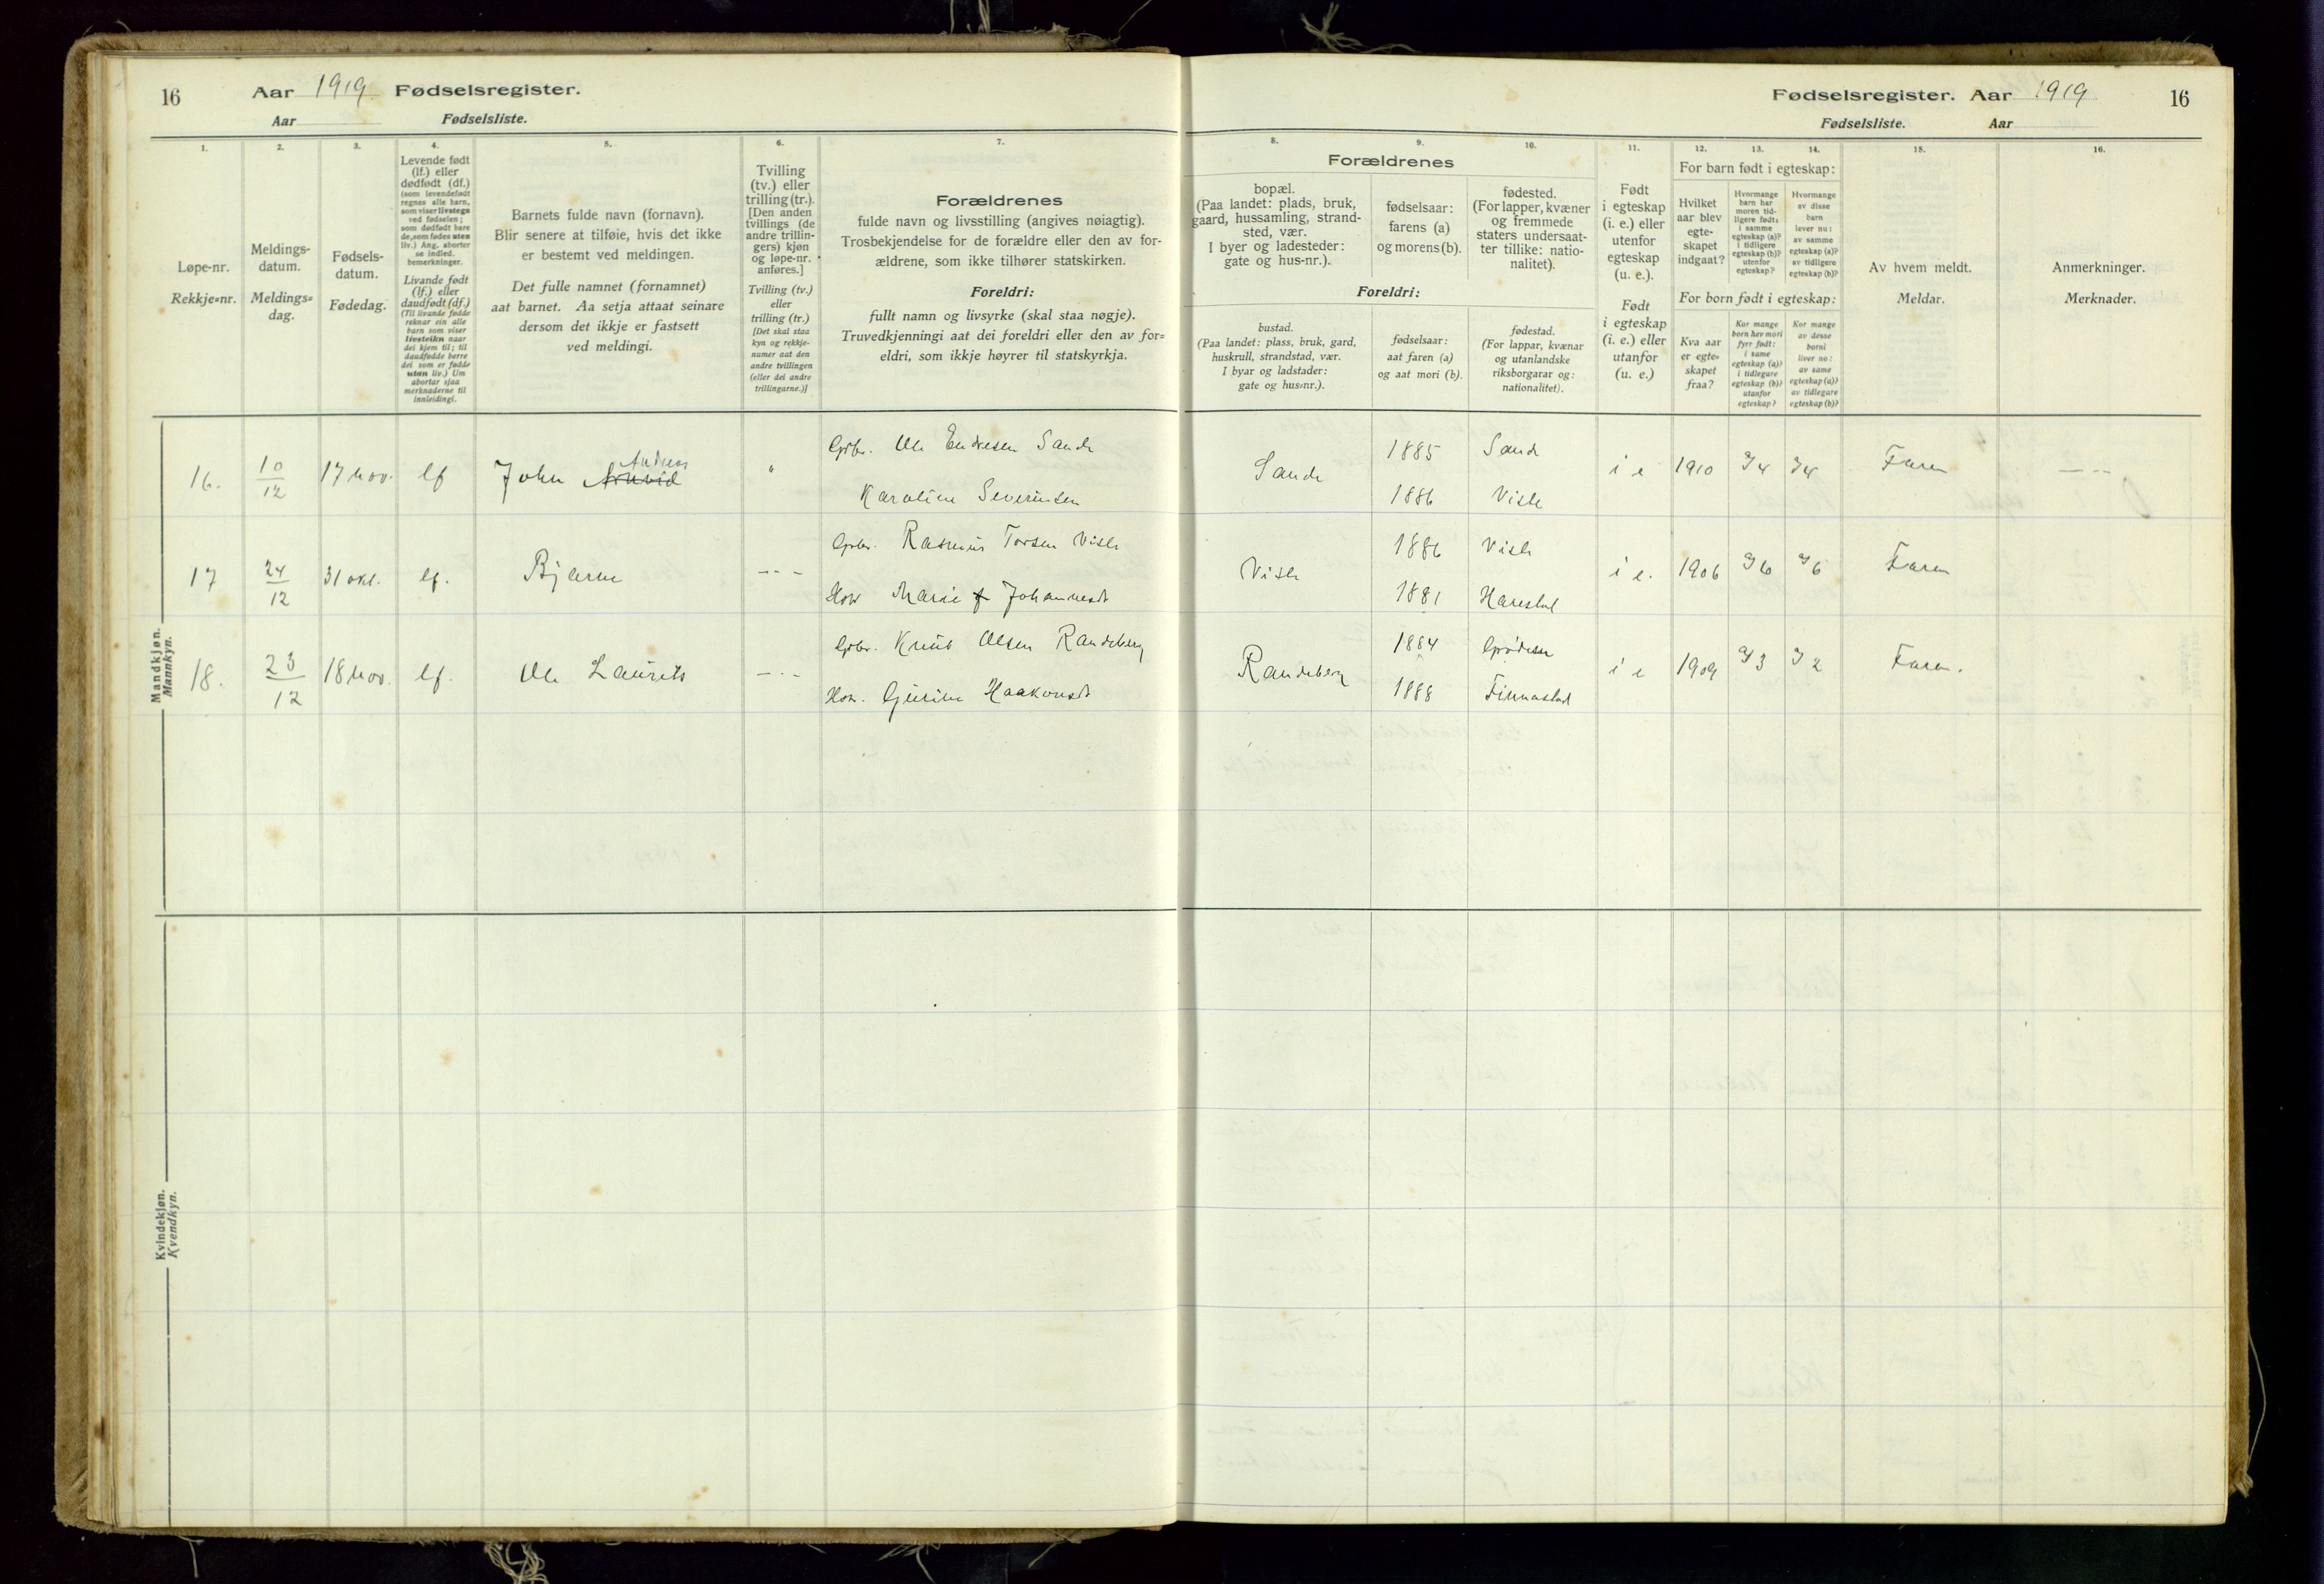 16 Aar 1919 Fødselsregister.
Aar Fødselsliste.
1.
Løpe-nr.
Rekkje=nr.
2.
Meldings-
datum.
Meldings=
dag.
3.
Fødsels-
datum.
Fødedag.
4.
Levende født
(lf.) eller
dødfødt (df.)
(som levendefødt
regnes alle barn,
som viser livstegn
ved fødselen;
som dødfødt bare
de, som fødes uten
liv.) Ang. aborter
se indled.
bemerkninger.
Livande født
(lf.) eller
daudfødt (df.)
(Til livande fødde
reknar ein alle
barn som viser
livsteikn naar
dei kjem til; til
daudfødde berre
dei som er fødde
utan liv.) Um
abortar sjaa
merknaderne til
innleidingi.
5.
Barnets fulde navn (fornavn).
Blir senere at tilføie, hvis det ikke
er bestemt ved meldingen.
Det fulle namnet (fornamnet)
aat barnet. Aa setja attaat seinare
dersom det ikkje er fastsett
ved meldingi.
6.
Tvilling
(tv.) eller
trilling (tr.).
[Den anden
tvillings (de
andre trillin-
gers) kjøn
og løpe-nr.
anføres.]
Tvilling (tv.)
eller
trilling (tr.)
[Det skal staa
kyn og rekkje-
numer aat den
andre tvillingen
(eller dei andre
trillingarne.)]
7.
Forældrenes
fulde navn og livsstilling (angives nøiagtig).
Trosbekjendelse for de forældre eller den av for-
ældrene, som ikke tilhører statskirken.
Foreldri:
fullt namn og livsyrke (skal staa nøgje).
Truvedkjenningi aat dei foreldri eller den av for=
eldri, som ikkje høyrer til statskyrkja.
Mandkjøn.
Mannkyn.
16. 10/12 17 nov. lf John Arnvid Andreas " Gbr. Ole Endresen Sande
Karoline Severinsen
17 24/12 31 okt. lf. Bjarne — - - Gbr. Rasmus Torsen Viste
Hu Marie Johannesdt
18. 23/12 18 nov. lf. Ole Laurits — - - Gbr. Knut Olsen Randeberg
Hu. Gjurine Haakonsdt
Kvindekjøn.
Kvendkyn.
Fødselsregister. Aar 1919 16
Fødselsliste. Aar
8. 9. 10.
Forældrenes
bopæl.
(Paa landet: plads, bruk,
gaard, hussamling, strand-
sted, vær.
I byer og ladesteder:
gate og hus-nr.).
fødselsaar:
farens (a)
og morens (b).
fødested.
(For lapper, kvæner
og fremmede
staters undersaat-
ter tillike: natio-
nalitet).
Foreldri:
bustad.
(Paa landet: plass, bruk, gard,
huskrull, strandstad, vær.
I byar og ladstader:
gate og hus=nr.).
fødselsaar:
aat faren (a)
og aat mori (b).
fødestad.
(For lappar, kvænar
og utanlandske
riksborgarar og:
nationalitet).
11.
Født
i egteskap
(i. e.) eller
utenfor
egteskap
(u. e.).
Født
i egteskap
(i. e.) eller
utanfor
(u. e.)
12. 13. 14.
For barn født i egteskap:
Hvilket
aar blev
egte-
skapet
indgaat?
Hvormange
barn har
moren tid-
ligere født:
i samme
egteskap (a)?
i tidligere
egteskap (b)?
utenfor
egteskap?
Hvormange
av disse
barn
lever nu:
av samme
egteskap (a)?
av tidligere
egteskap (b)?
For born født i egteskap:
Kva aar
er egte-
skapet
fraa?
Kor mange
born hev mori
fyrr født:
i same
egteskap (a)?
i tidlegare
egteskap (b)?
utanfor
egteskap?
Kor mange
av desse
borni
liver no:
av same
egteskap (a)?
av tidlegare
egteskap (b)?
15.
Av hvem meldt.
Meldar.
16.
Anmerkninger.
Merknader.
Sande 1885 Sande i e 1910 4 4 Faren — - -
1886 Viste
Viste 1886 Viste i e. 1906 6 6 Faren
1881 Harestad
Randeberg 1884 Grødem i e 1909 3 2 Faren.
1888 Finnestad